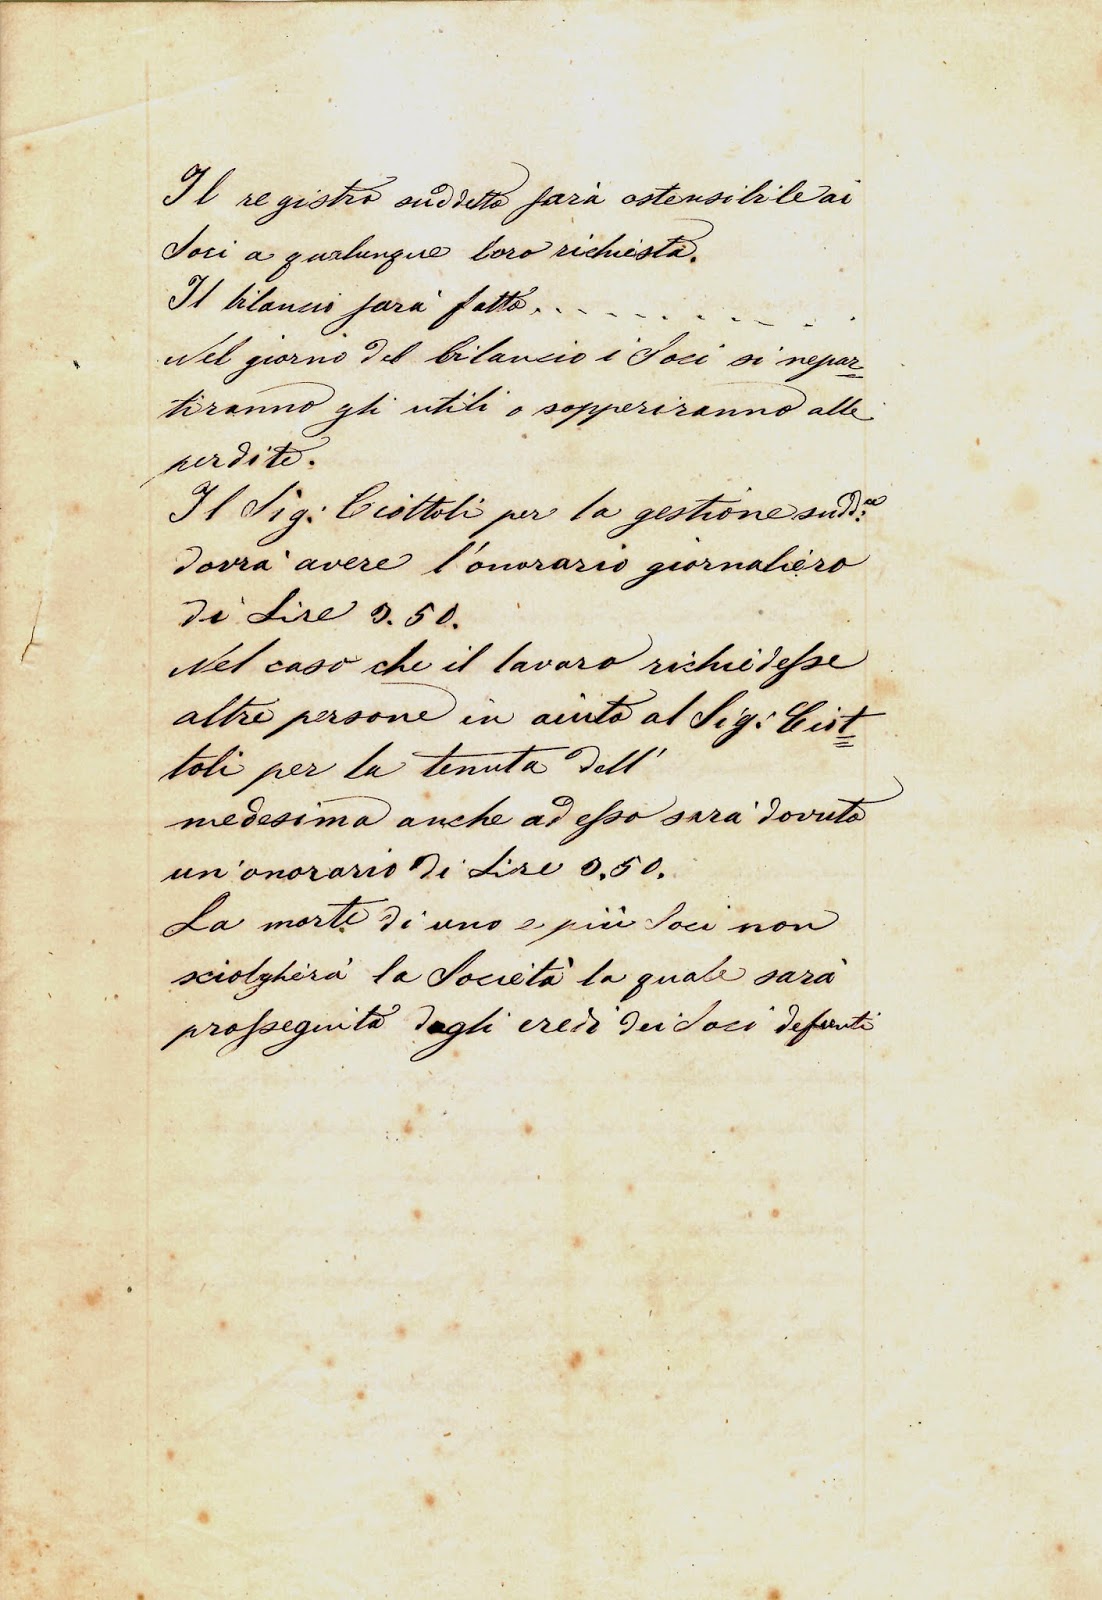 Il registro suddetto sarà ostensibile ai
Soci a qualunque loro richiesta.
Il bilancio sarà fatto. - - - - - - - - - -
Nel giorno del bilancio i Soci si repar=
tiranno gli utili o sopperiranno alle
perdite.
Il Sig: Ciottoli per la gestione sudd:a
dovrà avere l'onorario giornaliero
di Lire 3.50.
Nel caso che il lavoro richiedesse
altre persone in aiuto al Sig: Ciot=
toli per la tenuta dell'
medesima anche ad esso sarà dovuto
un'onorario di Lire 3.50.
La morte di uno e più Soci non
sciolgherà la Società la quale sarà
prosseguita dagli eredi dei Soci defunti